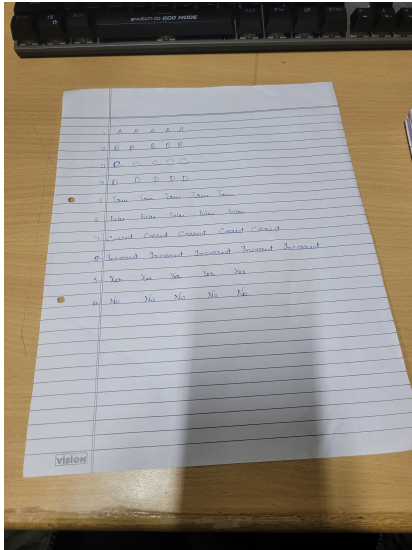 switch to GOD MODE
1. A A A A A
2. B B B B B
3. C C C C C
4. D D D D D
5. True True True True True
6. False False False False False
7. Correct Correct Correct Correct Correct
8. Incorrect Incorrect Incorrect Incorrect Incorrect
9. Yes Yes Yes Yes Yes
10. No No No No No
VISION